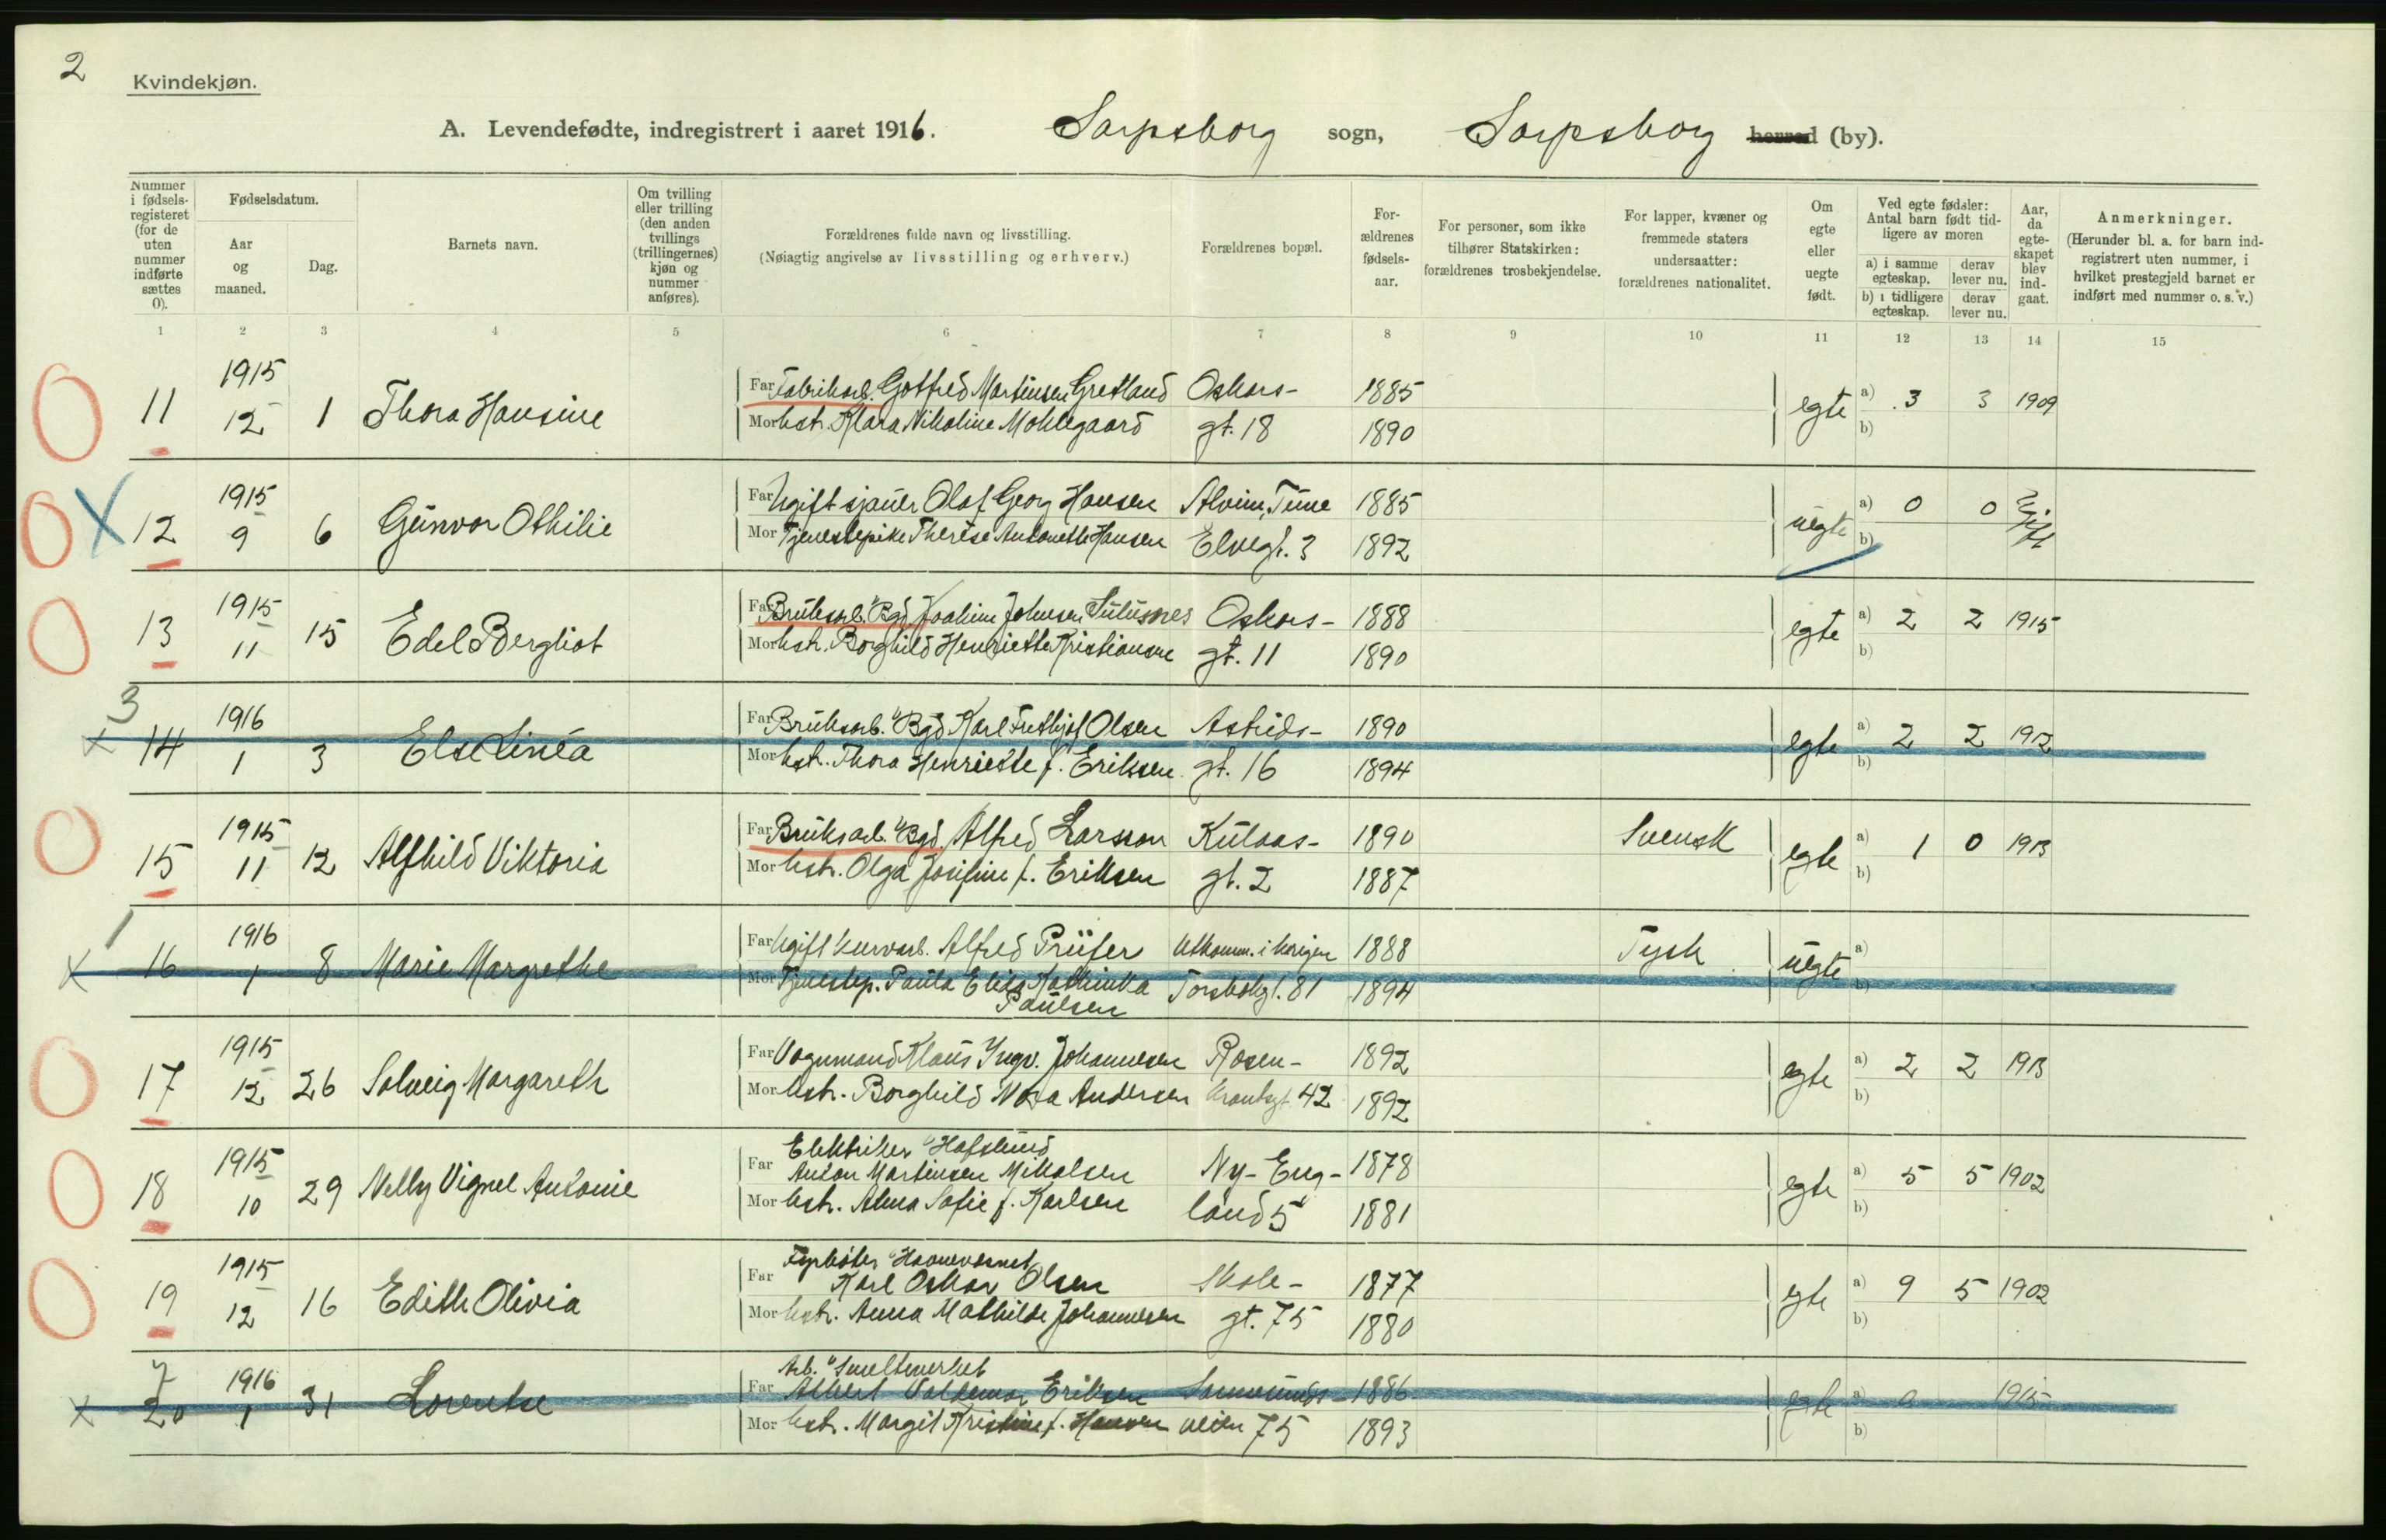 2
Kvindekjøn.
A. Levendefødte, indregistrert i aaret 1916. Sarpsborg sogn, Sarpsborg herred (by).
Nummer i fødsels-registeret (for de uten nummer indførte sættes 0).
Fødselsdatum.
Aar og maaned.
Dag.
Barnets navn.
Om tvilling eller trilling (den anden tvillings (trillingernes) kjøn og nummer anføres).
Forældrenes fulde navn og livsstilling.
(Nøiagtig angivelse av livsstilling og erhverv.)
Forældrenes bopæl.
For-ældrenes fødsels-aar.
For personer, som ikke tilhører Statskirken: forældrenes trosbekjendelse.
For lapper, kvæner og fremmede staters undersaatter: forældrenes nationalitet.
Om egte eller uegte født.
Ved egte fødsler: Antal barn født tid-ligere av moren
a) i samme egteskap. derav lever nu.
b) i tidligere egteskap. derav lever nu.
Aar, da egte-skapet blev ind-gaat.
Anmerkninger.
(Herunder bl. a. for barn ind-registrert uten nummer, i hvilket prestegjeld barnet er indført med nummer o. s. v.)
1 2 3 4 5 6 7 8 9 10 11 12 13 14 15
1915
11 12 1 Thora Hansine
Far Fabrikarb. Gotfred Martinsen Gretland Oskars- 1885
Mor hstr. Klara Nikoline Moklegaard gt. 18 1890
egte a) 3 3 1909
b)
1915
12 9 6 Gunvor Othilie
Far Ugift sjauer Olaf Georg Hansen Alvim, Tune 1885
Mor Tjenestepike Therese Antonette Hansen Elvegt. 3 1892
uegte a) 0 0 ugift
b)
1915
13 11 15 Edel Bergliot
Far Bruksarb. Bgd Joakim Johnsen Sulusnes Oskars- 1888
Mor hstr. Borghild Henriette Kristiansen gt. 11 1890
egte a) 2 2 1915
b)
3
1916
14 1 3 Else Linéa
Far Bruksarb. Bgd Karl Frithjof Olsen Astrids- 1890
Mor hstr. Thora Henriette f. Eriksen gt. 16 1894
egte a) 2 2 1912
b)
1915
15 11 12 Alfhild Viktoria
Far Bruksarb. Bgd. Alfred Larsson Kulaas- 1890
Mor hstr. Olga Josifine f. Eriksen gt. 2 1887
Svensk egte a) 1 0 1913
b)
1
1916
16 1 8 Marie Margrethe
Far Ugift kurvarb. Alfred Prüfer Utkomm. i krigen 1888
Mor Tjenestep. Paula Elida Kathinka Torsbekgt. 81 1894
Paulsen
Tysk uegte a)
b)
1915
17 12 26 Solveig Margareth
Far Vognmand Klaus Yngv. Johannesen Rosen- 1892
Mor hstr. Borghild Nora Andersen krantsgt. 42 1892
egte a) 2 2 1913
b)
1915
18 10 29 Nelly Vignel Antonie
Elektriker Hafslund
Far Anton Martinsen Mikalsen Ny-Eng- 1878
Mor hstr. Alma Sofie f. Karlsen land 5 1881
egte a) 5 5 1902
b)
1915
19 12 16 Edith Olivia
Fyrbøter
Far Karl Oskar Olsen Skole- 1877
Mor hstr. Anna Mathilde Johannesen gt. 75 1880
egte a) 9 5 1902
b)
1916
20 1 31 Lorentse
Arb. Smelteverket
Far Albert Valdemar Eriksen 1886
Mor hstr. Margit Kristine f. Hansen veien 75 1893
egte a) 0 1915
b)